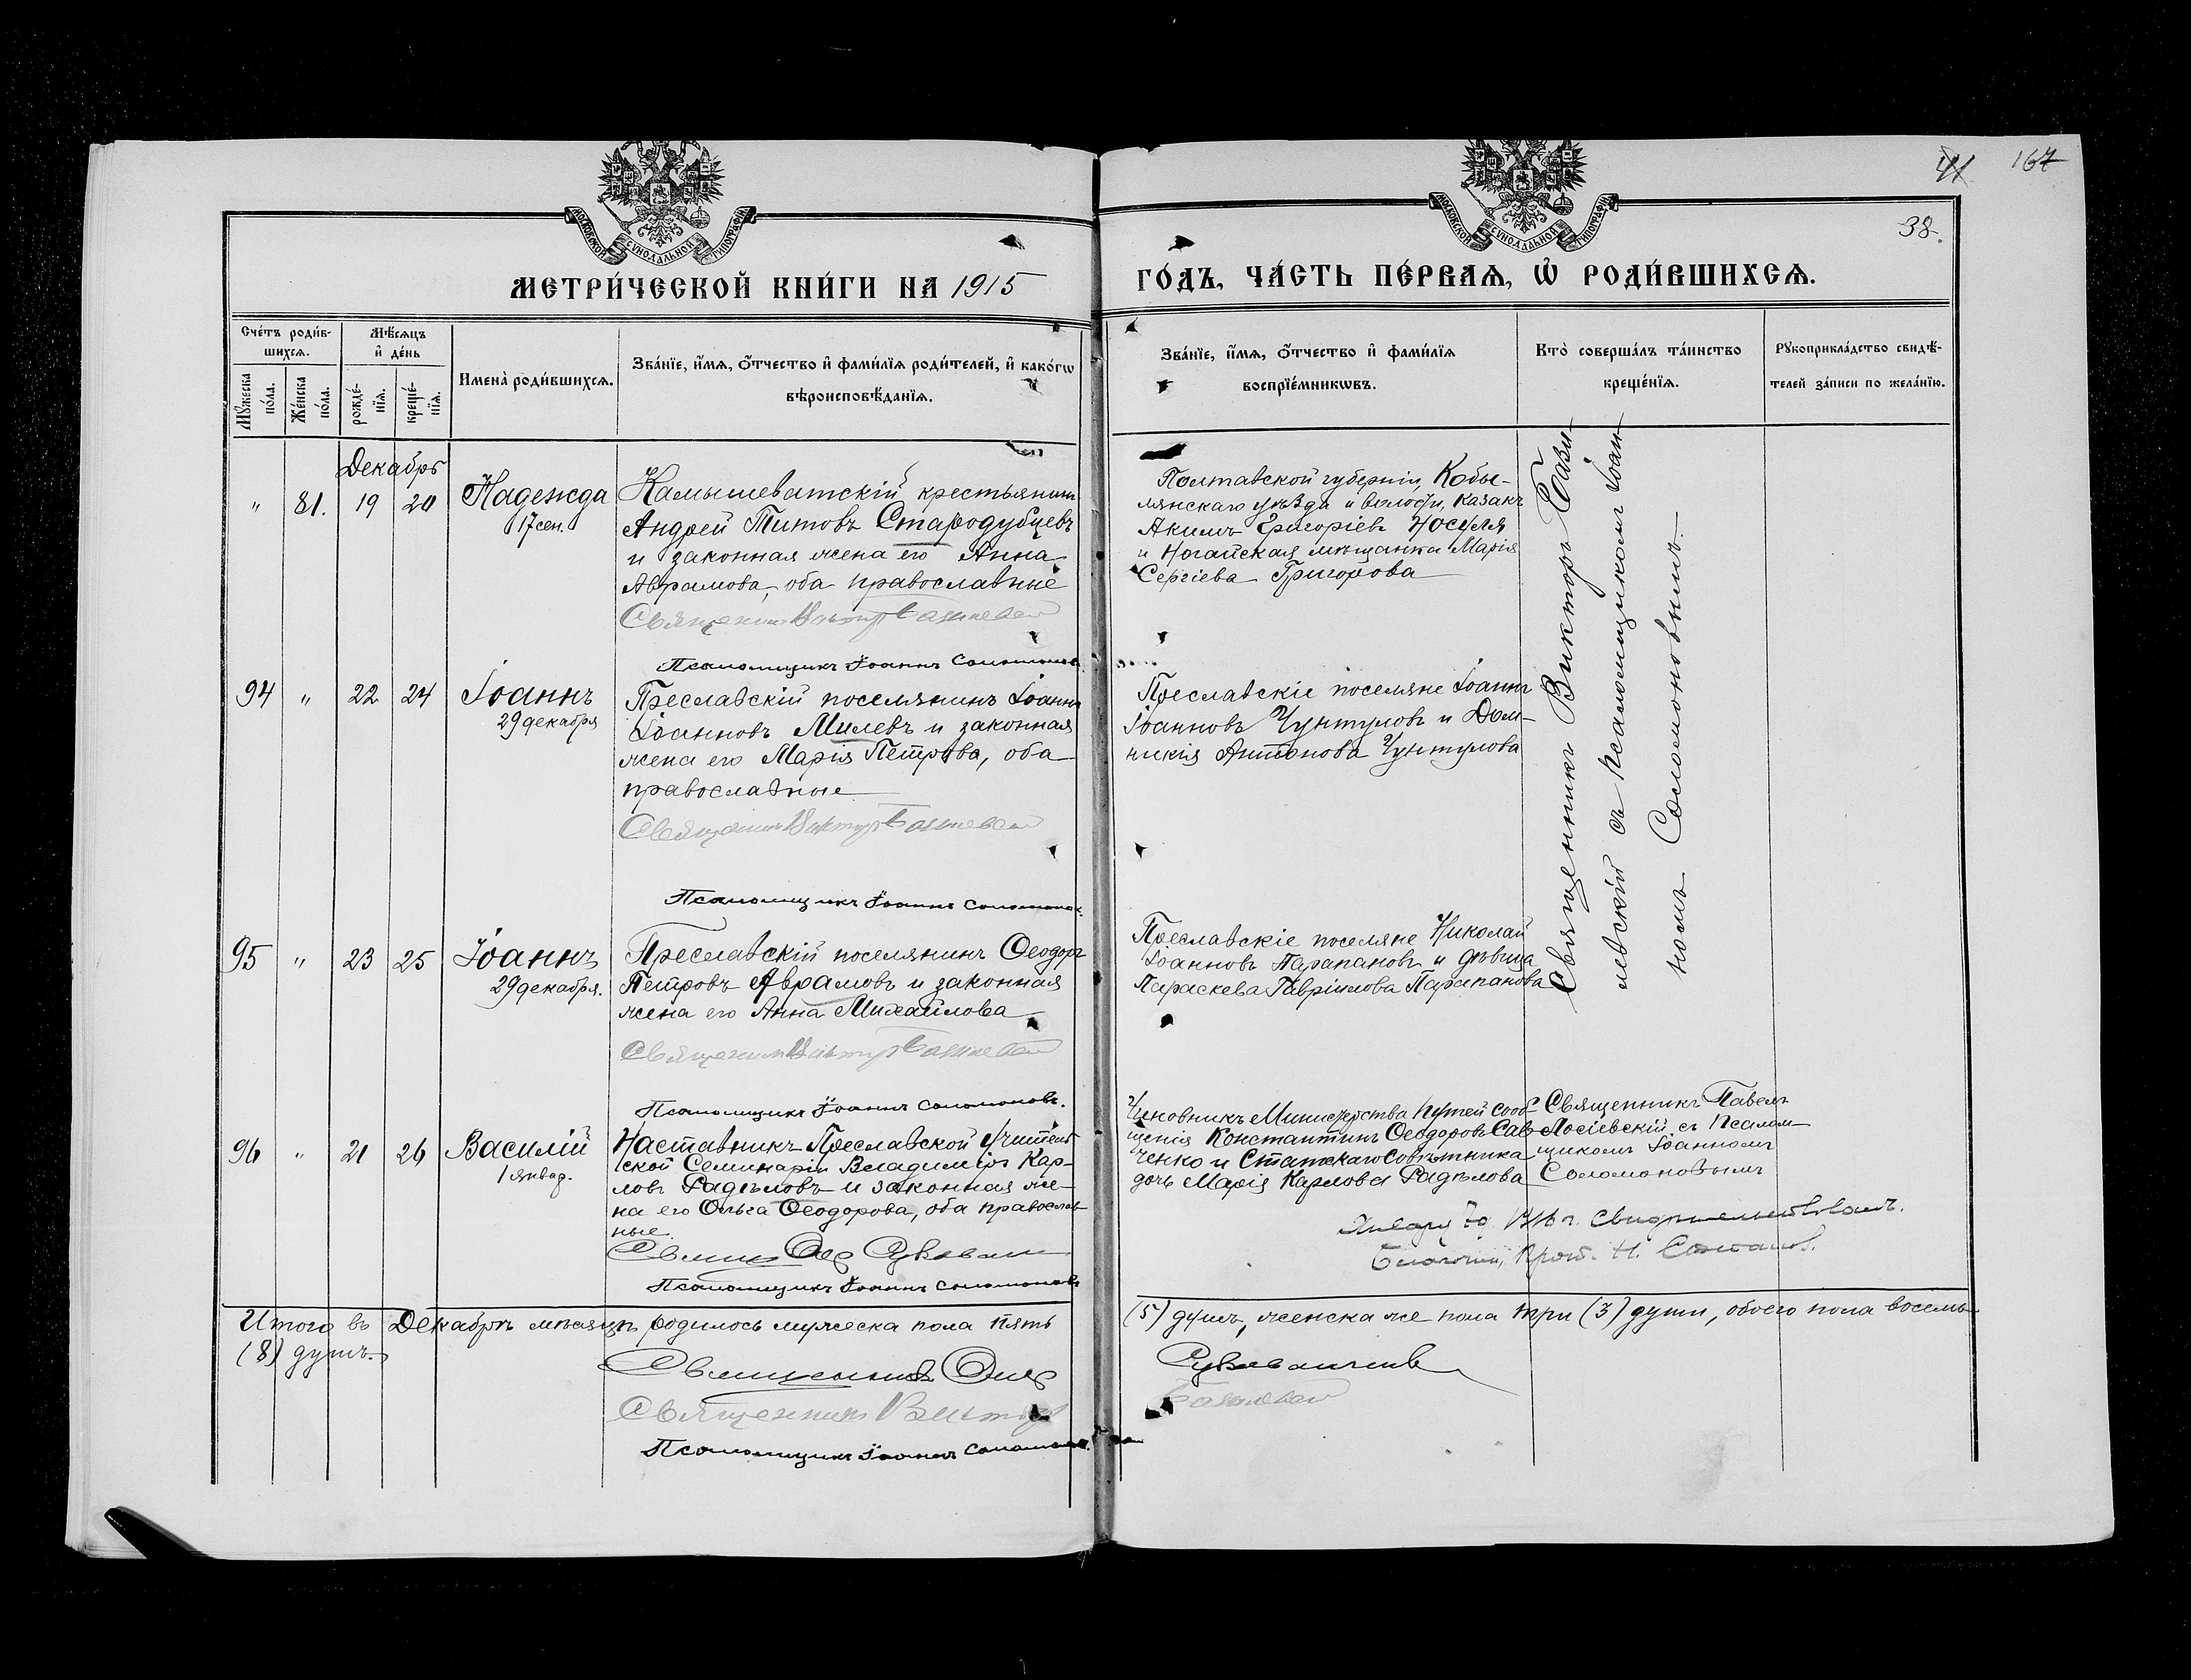 41 167
38.
МОСКОВСКОЙ СѴНОДАЛЬНОЙ ТИПОГРАФІИ
МОСКОВСКОЙ СѴНОДАЛЬНОЙ ТИПОГРАФІИ
МЕТРИ́ЧЕСКОЙ КНИ́ГИ НА 1915
ГО́ДЪ, ЧА́СТЬ ПЕ́РВАѦ, Ѡ҆ РОДИ́ВШИХСѦ.
Сче́тъ роди́в-
шихсѧ.
Мѣ́сѧцъ
и҆ де́нь
Мꙋ́жеска
по́ла.
Же́нска
по́ла.
рожде́-
нїѧ.
креще́-
нїѧ.
Имена̀ роди́вшихсѧ.
Зва́нїе, и҆́мѧ, ѻ҆́тчество и҆ фами́лїѧ роди́телей, и҆ како́гѡ
вѣроисповѣ́данїѧ.
Зва́нїе, и҆́мѧ, ѻ҆́тчество и҆ фами́лїѧ
воспрїе́мникѡвъ.
Кто̀ соверша́лъ та́инство
креще́нїѧ.
Рꙋкоприкла́дство свидѣ́-
телей за́писи по жела́нїю.
Декабрь
" 81. 19 20 Надежда
17 сен.
Камышеватскій крестьянин
Андрей Титовъ Стародубцевъ
и законная жена его Анна
Аврамова, оба православные
Священник Виктор Базилевский
Псаломщикъ Іоаннъ Соломонов
Полтавской губерніи, Кобы-
лянскаго уѣзда и волости, казакъ
Акимъ Григоріевъ Носуля
и Ногайская мѣщанка Марія
Сергіева Григорова
Священникъ Викторъ Бази-
левскій съ псаломщикомъ Іоан-
номъ Соломоновымъ.
94 " 22 24 Іоаннъ
29 декабря
Преславскій поселянинъ Іоаннъ
Іоанновъ Милевъ и законная
жена его Марія Петрова, оба
православные
Священник Виктор Базилевский
Псаломщикъ Іоаннъ Соломонов.
Преславскіе поселяне Іоаннъ
Іоанновъ Чунтуловъ и Дом-
никія Антонова Чунтулова
95 " 23 25 Іоаннъ
29 декабря.
Преславскій поселянинъ Ѳеодоръ
Петровъ Аврамовъ и законная
жена его Анна Михайлова
Священник Виктор Базилевский
Псаломщикъ Іоаннъ Соломоновъ.
Преславскіе поселяне Николай
Іоанновъ Парапановъ и дѣвица
Параскева Гавріилова Парапанова
96 " 21 26 Василій
1 январ.
Наставникъ Преславской Учитель-
ской Семинаріи Владиміръ Кар-
ловъ Радѣловъ и законная же-
на его Ольга Ѳеодорова, оба православ-
ные.
Псаломщикъ Іоаннъ Соломоновъ
Чиновникъ Министерства Путей сооб-
щенія Константинъ Ѳеодоровъ Сав-
ченко и Статскаго Совѣтника
дочь Марія Карлова Радѣлова
Священникъ Павелъ
Лосіевскій съ псалом-
щикомъ Іоанномъ
Соломоновымъ
1916 г. свидѣтельствовалъ.
Благочинный, Прот. Н.
Итого въ Декабрѣ мѣсяцѣ родилось мужеска пола пять
(5) душъ, женска же пола три (3) души, обоего пола восемь
(8) душъ.
Священник
Священник Виктор
Базилевский
Псаломщикъ Іоаннъ Соломонов.